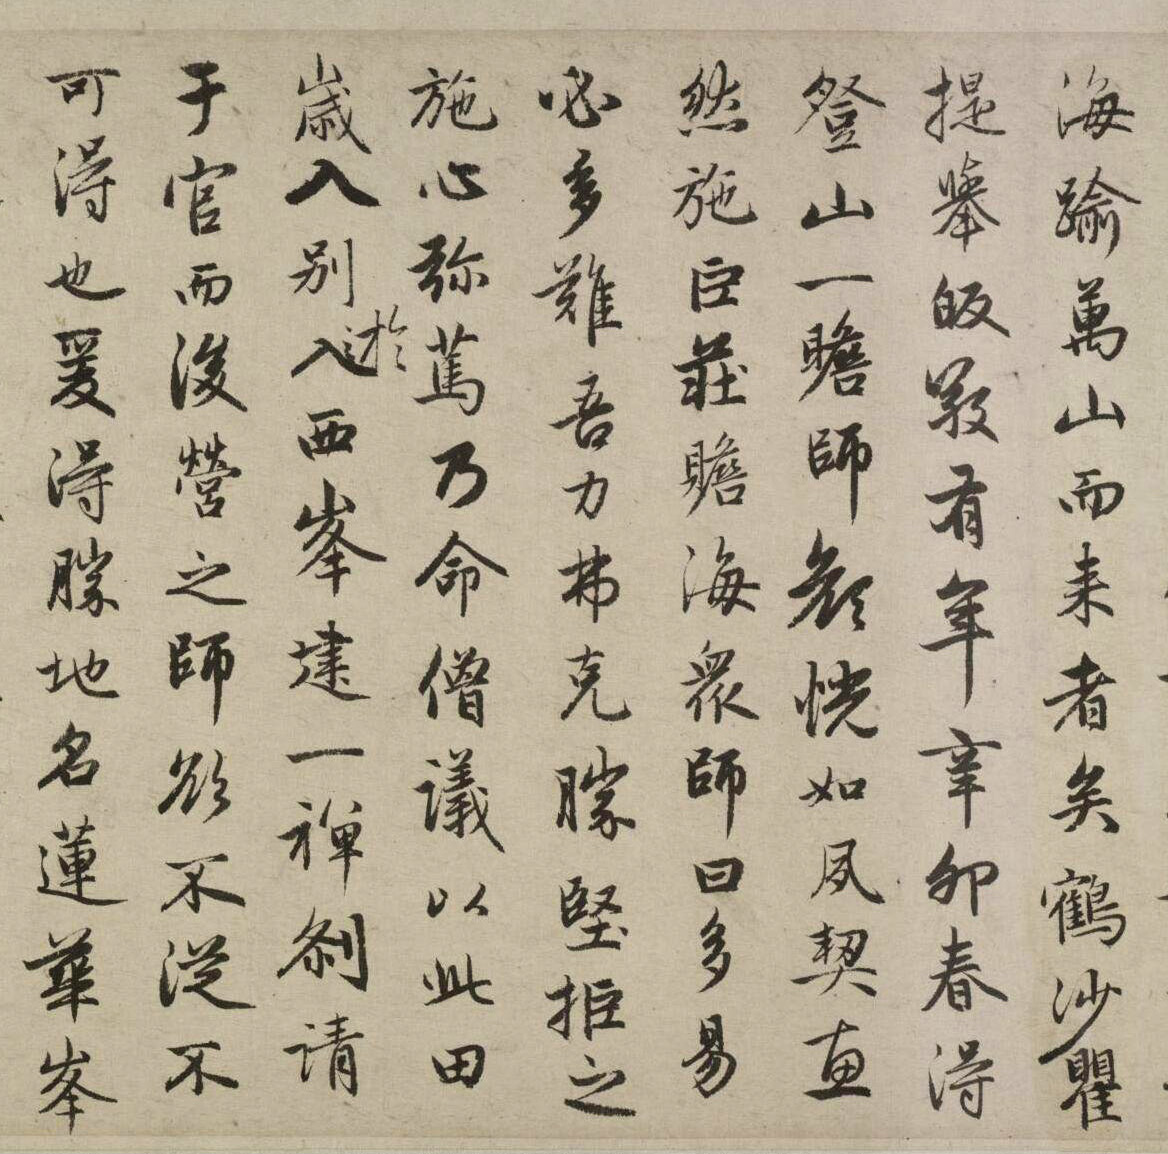 海踰萬山而来者矣鶴沙瞿
提舉皈敬有年辛卯春得
登山一瞻師顔恍如夙契
然施巨莊贍海衆師曰多易
必多難吾力弗克勝堅拒之
施心弥篤乃命僧議以此田
歲入别入於西峯建一禪刹請
于官而後營之師欲不從不
可得也爰得勝地名蓮華峯